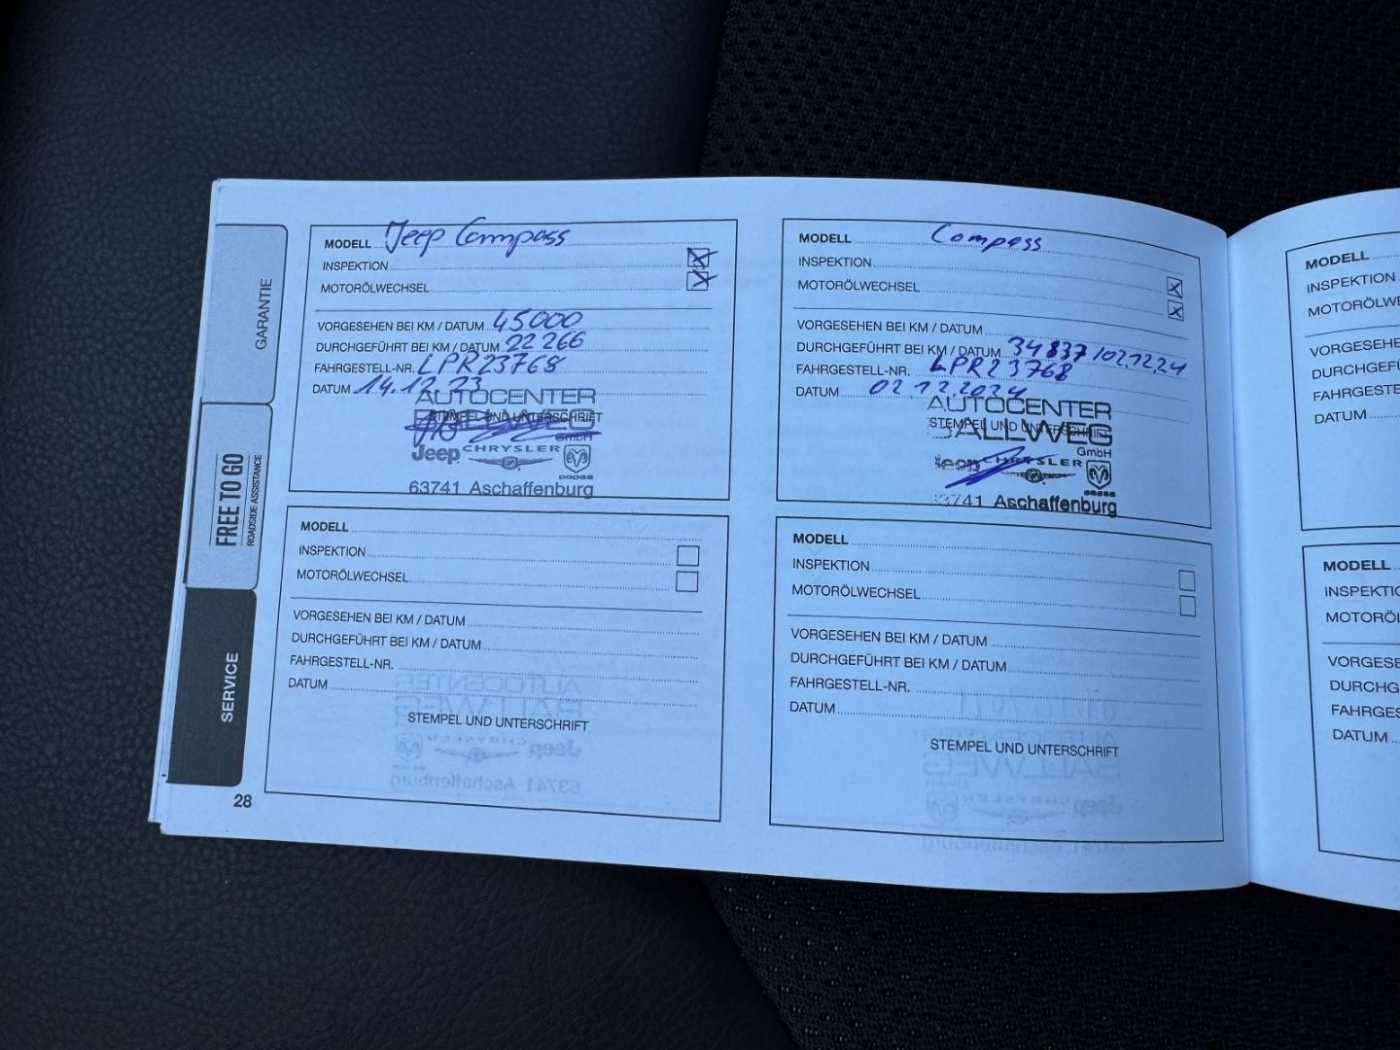 GARANTIE
FREE TO GO
ROADSIDE ASSISTANCE
SERVICE
28
MODELL Jeep Compass
INSPEKTION
MOTORÖLWECHSEL
VORGESEHEN BEI KM / DATUM 45000
DURCHGEFÜHRT BEI KM / DATUM 22266
FAHRGESTELL-NR. LPR23768
DATUM 14.12.23
AUTOCENTER
STEMPEL UND UNTERSCHRIFT
BALLWEG
GmbH
Jeep CHRYSLER
DODGE
63741 Aschaffenburg
MODELL Compass
INSPEKTION
MOTORÖLWECHSEL
VORGESEHEN BEI KM / DATUM
DURCHGEFÜHRT BEI KM / DATUM 34837 / 02.12.24
FAHRGESTELL-NR. LPR23768
DATUM 02.12.2024
AUTOCENTER
STEMPEL UND UNTERSCHRIFT
BALLWEG
GmbH
Jeep CHRYSLER
63741 Aschaffenburg
MODELL
INSPEKTION
MOTORÖLWECHSEL
VORGESEHEN BEI KM / DATUM
DURCHGEFÜHRT BEI KM / DATUM
FAHRGESTELL-NR.
DATUM
STEMPEL UND UNTERSCHRIFT
MODELL
INSPEKTION
MOTORÖLWECHSEL
VORGESEHEN BEI KM / DATUM
DURCHGEFÜHRT BEI KM / DATUM
FAHRGESTELL-NR.
DATUM
STEMPEL UND UNTERSCHRIFT
MODELL
INSPEKTION
MOTORÖLWE
VORGESEHE
DURCHGEFÜ
FAHRGEST
DATUM
MODELL
INSPEKTIO
MOTORÖL
VORGESE
DURCHG
FAHRGES
DATUM